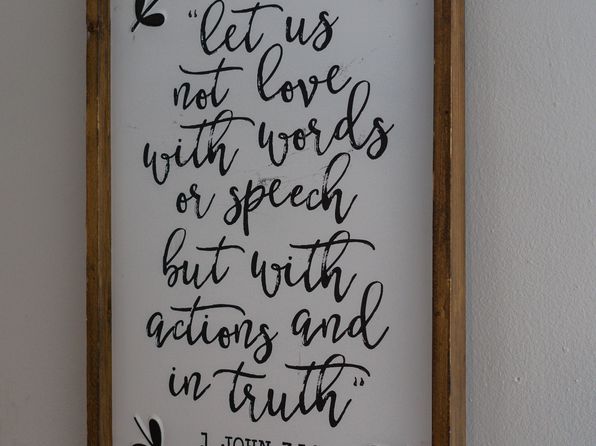 "let us
not love
with words
or speech
but with
actions and
in truth"
1 JOHN